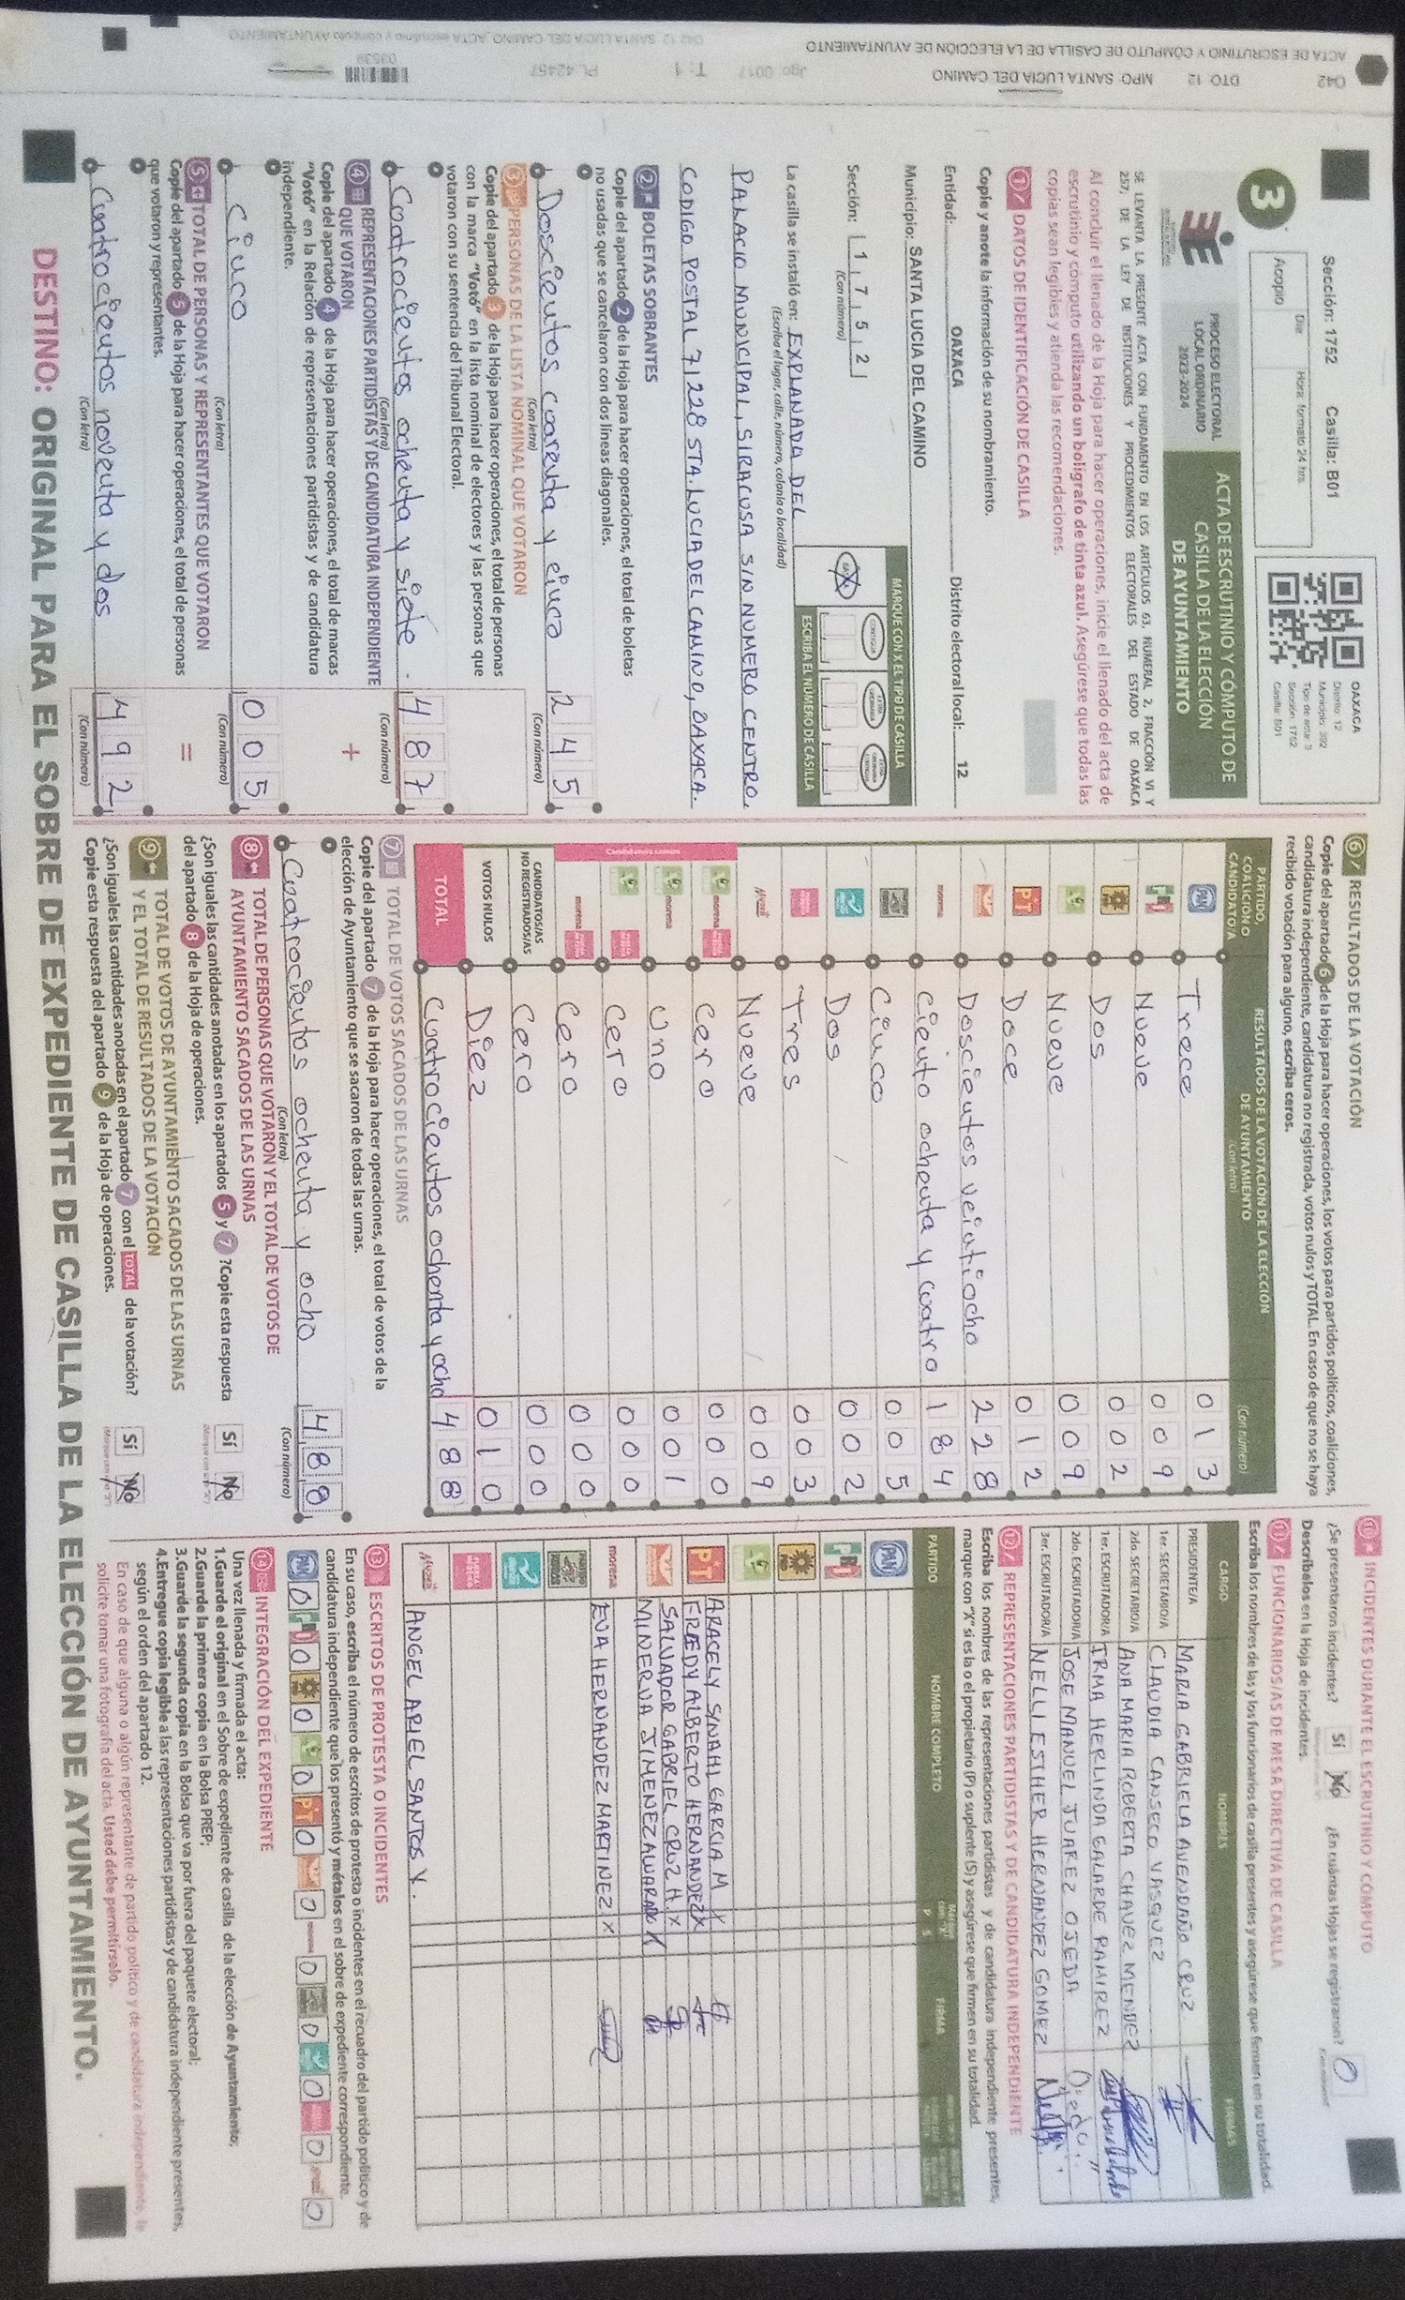 042 DTO 12 MPO SANTA LUCIA DEL CAMINO Jgo: 0017 T: 1 PL 42457 03539
ACTA DE ESCRUTINIO Y CÓMPUTO DE CASILLA DE LA ELECCIÓN DE AYUNTAMIENTO 042 12 SANTA LUCIA DEL CAMINO
Sección: 1752 Casilla: B01
Día: Hora: formato 24 hrs.
Acopio
OAXACA
Distrito: 12
Municipio: 392
Tipo de acta: 3
Sección: 1752
Casilla: B01
3
PROCESO ELECTORAL
LOCAL ORDINARIO
2023-2024
ACTA DE ESCRUTINIO Y CÓMPUTO DE
CASILLA DE LA ELECCIÓN
DE AYUNTAMIENTO
SE LEVANTA LA PRESENTE ACTA CON FUNDAMENTO EN LOS ARTÍCULOS 63, NUMERAL 2, FRACCIÓN VI Y
257, DE LA LEY DE INSTITUCIONES Y PROCEDIMIENTOS ELECTORALES DEL ESTADO DE OAXACA
Al concluir el llenado de la Hoja para hacer operaciones, inicie el llenado del acta de
escrutinio y cómputo utilizando un bolígrafo de tinta azul. Asegúrese que todas las
copias sean legibles y atienda las recomendaciones.
1 DATOS DE IDENTIFICACIÓN DE CASILLA
Copie y anote la información de su nombramiento.
Entidad: OAXACA Distrito electoral local: 12
Municipio: SANTA LUCIA DEL CAMINO
Sección: 1 7 5 2
(Con número)
MARQUE CON X EL TIPO DE CASILLA
ESCRIBA EL NÚMERO DE CASILLA
La casilla se instaló en: EXPLANADA DEL
(Escriba el lugar, calle, número, colonia o localidad)
PALACIO MUNICIPAL, SIRACUSA SIN NUMERO CENTRO,
CODIGO POSTAL 71228 STA. LUCIA DEL CAMINO, OAXACA.
2 BOLETAS SOBRANTES
Copie del apartado 2 de la Hoja para hacer operaciones, el total de boletas
no usadas que se cancelaron con dos líneas diagonales.
Doscientos coarenta y cinco 2 4 5
(Con letra) (Con número)
3 PERSONAS DE LA LISTA NOMINAL QUE VOTARON
Copie del apartado 3 de la Hoja para hacer operaciones, el total de personas
con la marca "Votó" en la lista nominal de electores y las personas que
votaron con su sentencia del Tribunal Electoral.
Coatrocientos ochenta y siete. 4 8 7
(Con letra) (Con número)
4 REPRESENTACIONES PARTIDISTAS Y DE CANDIDATURA INDEPENDIENTE
QUE VOTARON
Copie del apartado 4 de la Hoja para hacer operaciones, el total de marcas
"Votó" en la Relación de representaciones partidistas y de candidatura
independiente.
+
Cinco 0 0 5
(Con letra) (Con número)
5 TOTAL DE PERSONAS Y REPRESENTANTES QUE VOTARON
Copie del apartado 5 de la Hoja para hacer operaciones, el total de personas
que votaron y representantes.
=
Cuatrocientos noventa y dos 4 9 2
(Con letra) (Con número)
6 RESULTADOS DE LA VOTACIÓN
Copie del apartado 6 de la Hoja para hacer operaciones, los votos para partidos políticos, coaliciones,
candidatura independiente, candidatura no registrada, votos nulos y TOTAL. En caso de que no se haya
recibido votación para alguno, escriba ceros.
PARTIDO, COALICIÓN O CANDIDATO/A
RESULTADOS DE LA VOTACIÓN DE LA ELECCIÓN
DE AYUNTAMIENTO
(Con letra) (Con número)
PAN Trece 0 1 3
PRI Nueve 0 0 9
Dos 0 0 2
Nueve 0 0 9
PT Doce 0 1 2
Doscientos veintiocho 2 2 8
morena Ciento ochenta y cuatro 1 8 4
Cinco 0 0 5
Dos 0 0 2
Tres 0 0 3
Nueve 0 0 9
Candidatura común
morena Cero 0 0 0
morena Uno 0 0 1
Cero 0 0 0
morena Cero 0 0 0
CANDIDATOS/AS
NO REGISTRADOS/AS Cero 0 0 0
VOTOS NULOS Diez 0 1 0
TOTAL Cuatrocientos ochenta y ocho 4 8 8
7 TOTAL DE VOTOS SACADOS DE LAS URNAS
Copie del apartado 7 de la Hoja para hacer operaciones, el total de votos de la
elección de Ayuntamiento que se sacaron de todas las urnas.
Cuatrocientos ochenta y ocho 4 8 8
(Con letra) (Con número)
8 TOTAL DE PERSONAS QUE VOTARON Y EL TOTAL DE VOTOS DE
AYUNTAMIENTO SACADOS DE LAS URNAS
¿Son iguales las cantidades anotadas en los apartados 5 y 7 ? Copie esta respuesta
del apartado 8 de la Hoja de operaciones.
Sí No
9 TOTAL DE VOTOS DE AYUNTAMIENTO SACADOS DE LAS URNAS
Y EL TOTAL DE RESULTADOS DE LA VOTACIÓN
¿Son iguales las cantidades anotadas en el apartado 7 con el TOTAL de la votación?
Copie esta respuesta del apartado 9 de la Hoja de operaciones.
Sí No
10 INCIDENTES DURANTE EL ESCRUTINIO Y CÓMPUTO
¿Se presentaron incidentes? Sí No ¿En cuántas Hojas se registraron? 0
Descríbalos en la Hoja de incidentes.
11 FUNCIONARIOS/AS DE MESA DIRECTIVA DE CASILLA
Escriba los nombres de las y los funcionarios de casilla presentes y asegúrese que firmen en su totalidad.
CARGO NOMBRES FIRMAS
PRESIDENTE/A MARIA GABRIELA AVENDAÑO CRUZ
1er. SECRETARIO/A CLAUDIA CANSECO VASQUEZ
2do. SECRETARIO/A ANA MARIA ROBERTA CHAVEZ MENDEZ
1er. ESCRUTADOR/A IRMA HERLINDA GALARDE RAMIREZ
2do. ESCRUTADOR/A JOSE MANUEL JUAREZ OJEDA
3er. ESCRUTADOR/A NELLI ESTHER HERNANDEZ GOMEZ
12 REPRESENTACIONES PARTIDISTAS Y DE CANDIDATURA INDEPENDIENTE
Escriba los nombres de las representaciones partidistas y de candidatura independiente presentes,
marque con "X" si es la o el propietario (P) o suplente (S) y asegúrese que firmen en su totalidad.
PARTIDO NOMBRE COMPLETO P S FIRMA
PAN
PRI
PT ARACELY SINAHI GARCIA M X
FREDY ALBERTO HERNANDEZ X
SALVADOR GABRIEL CRUZ H. X
MINERVA JIMENEZ ALVARADO X
morena EVA HERNANDEZ MARTINEZ X
ANGEL ARIEL SANTOS Y.
13 ESCRITOS DE PROTESTA O INCIDENTES
En su caso, escriba el número de escritos de protesta o incidentes en el recuadro del partido político y de
candidatura independiente que los presentó y métalos en el sobre de expediente correspondiente.
PAN 0 PRI 0 0 0 PT 0 0 0 0 0 0 0
14 INTEGRACIÓN DEL EXPEDIENTE
Una vez llenada y firmada el acta:
1.Guarde el original en el Sobre de expediente de casilla de la elección de Ayuntamiento;
2.Guarde la primera copia en la Bolsa PREP;
3.Guarde la segunda copia en la Bolsa que va por fuera del paquete electoral;
4.Entregue copia legible a las representaciones partidistas y de candidatura independiente presentes,
según el orden del apartado 12.
En caso de que alguna o algún representante de partido político y de candidatura independiente, le
solicite tomar una fotografía del acta. Usted debe permitírselo.
DESTINO: ORIGINAL PARA EL SOBRE DE EXPEDIENTE DE CASILLA DE LA ELECCIÓN DE AYUNTAMIENTO.